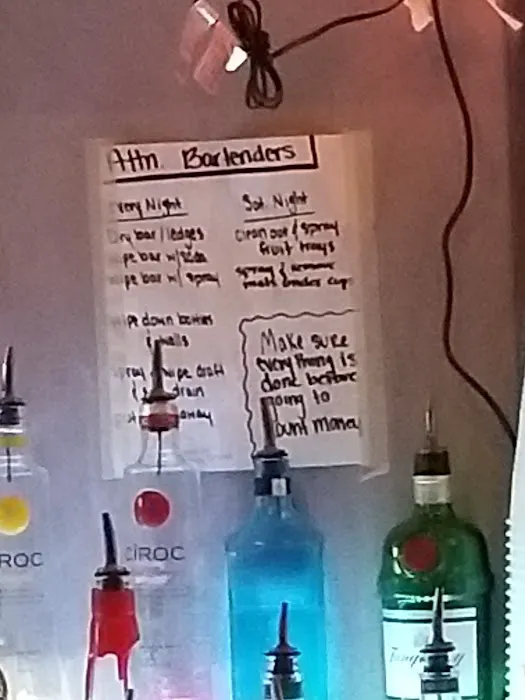 Attn. Bartenders
Every Night
Dry bar/ledges
wipe bar w/soda
wipe bar w/ spray
wipe down bottles
& walls
spray & wipe draft
drain
away
Sat. Night
Clean out & spray
fruit trays
spray &
under cup
Make sure
everything is
done before
going to
count money
CÎROC
CÎROC
Tanqueray